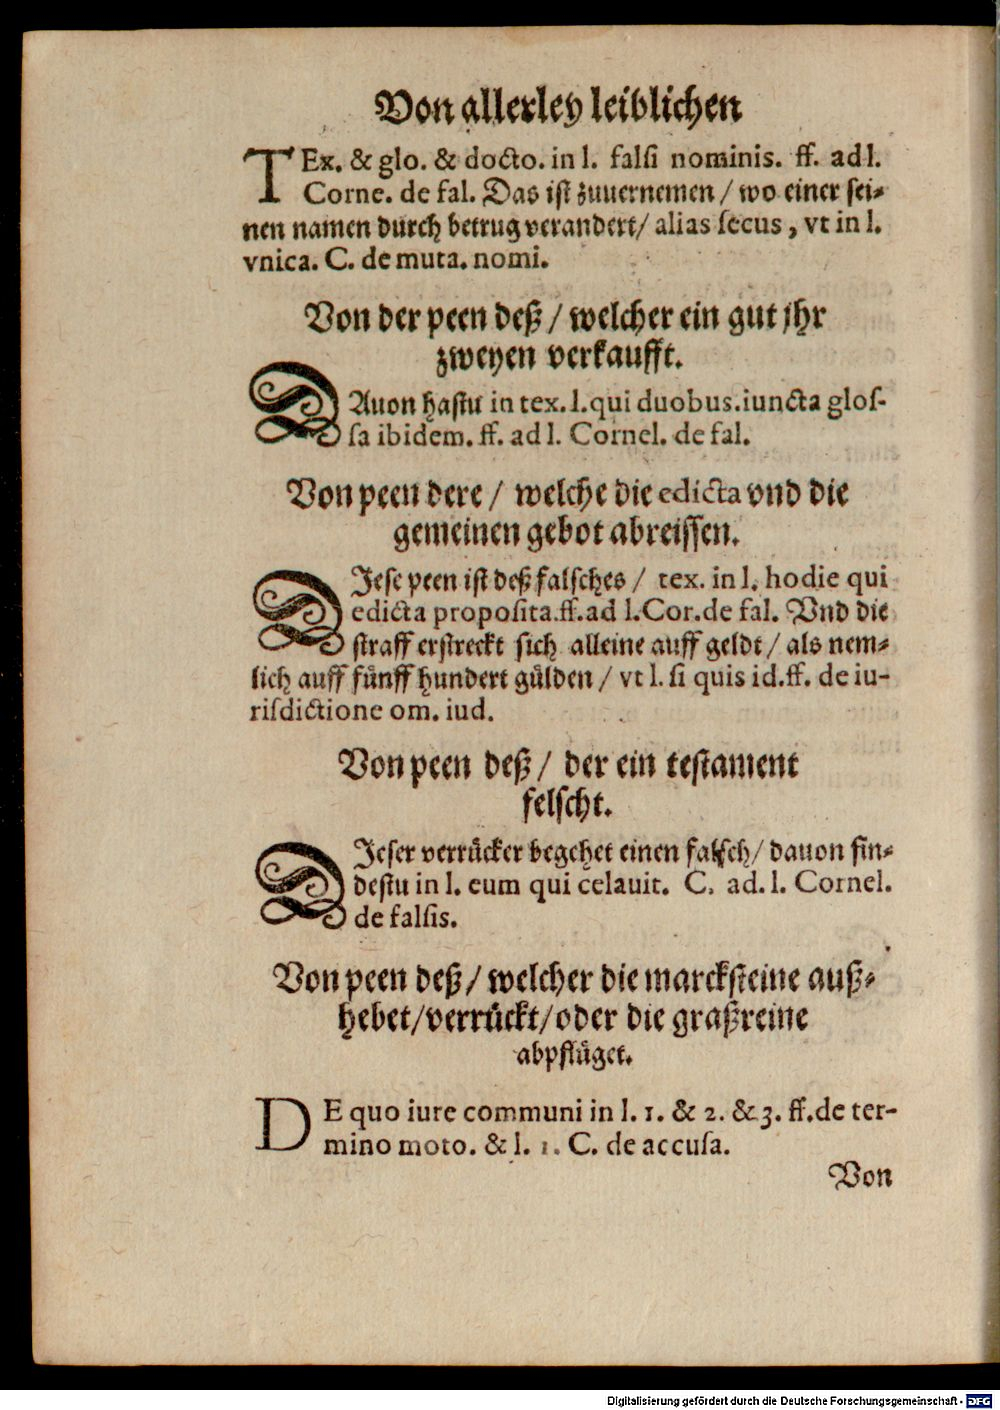 Von allerley leiblichen
TEx. & glo. & docto. in l. falsi nominis. ff. ad l.
Corne. de fal. Das ist zuuernemen / wo einer sei-
nen namen durch betrug verandert / alias secus, vt in l.
vnica. C. de muta. nomi.
Von der peen deß / welcher ein gut jhr
zweyen verkaufft.
DAuon hastu in tex. l. qui duobus. iuncta glos-
sa ibidem. ff. ad l. Cornel. de fal.
Von peen dere / welche die edicta vnd die
gemeinen gebot abreissen.
DIese peen ist deß falsches / tex. in l. hodie qui
edicta proposita. ff. ad l. Cor. de fal. Vnd die
straff erstreckt sich alleine auff geldt / als nem-
lich auff fünff hundert gülden / vt l. si quis id. ff. de iu-
risdictione om. iud.
Von peen deß / der ein testament
felscht.
DIeser verrücker begehet einen falsch / dauon fin-
destu in l. eum qui celauit. C. ad. l. Cornel.
de falsis.
Von peen deß / welcher die marcksteine auß-
hebet / verrückt / oder die graßreine
abpflüget.
DE quo iure communi in l. 1. & 2. & 3. ff. de ter-
mino moto. & l. 1. C. de accusa.
Von
Digitalisierung gefördert durch die Deutsche Forschungsgemeinschaft - DFG